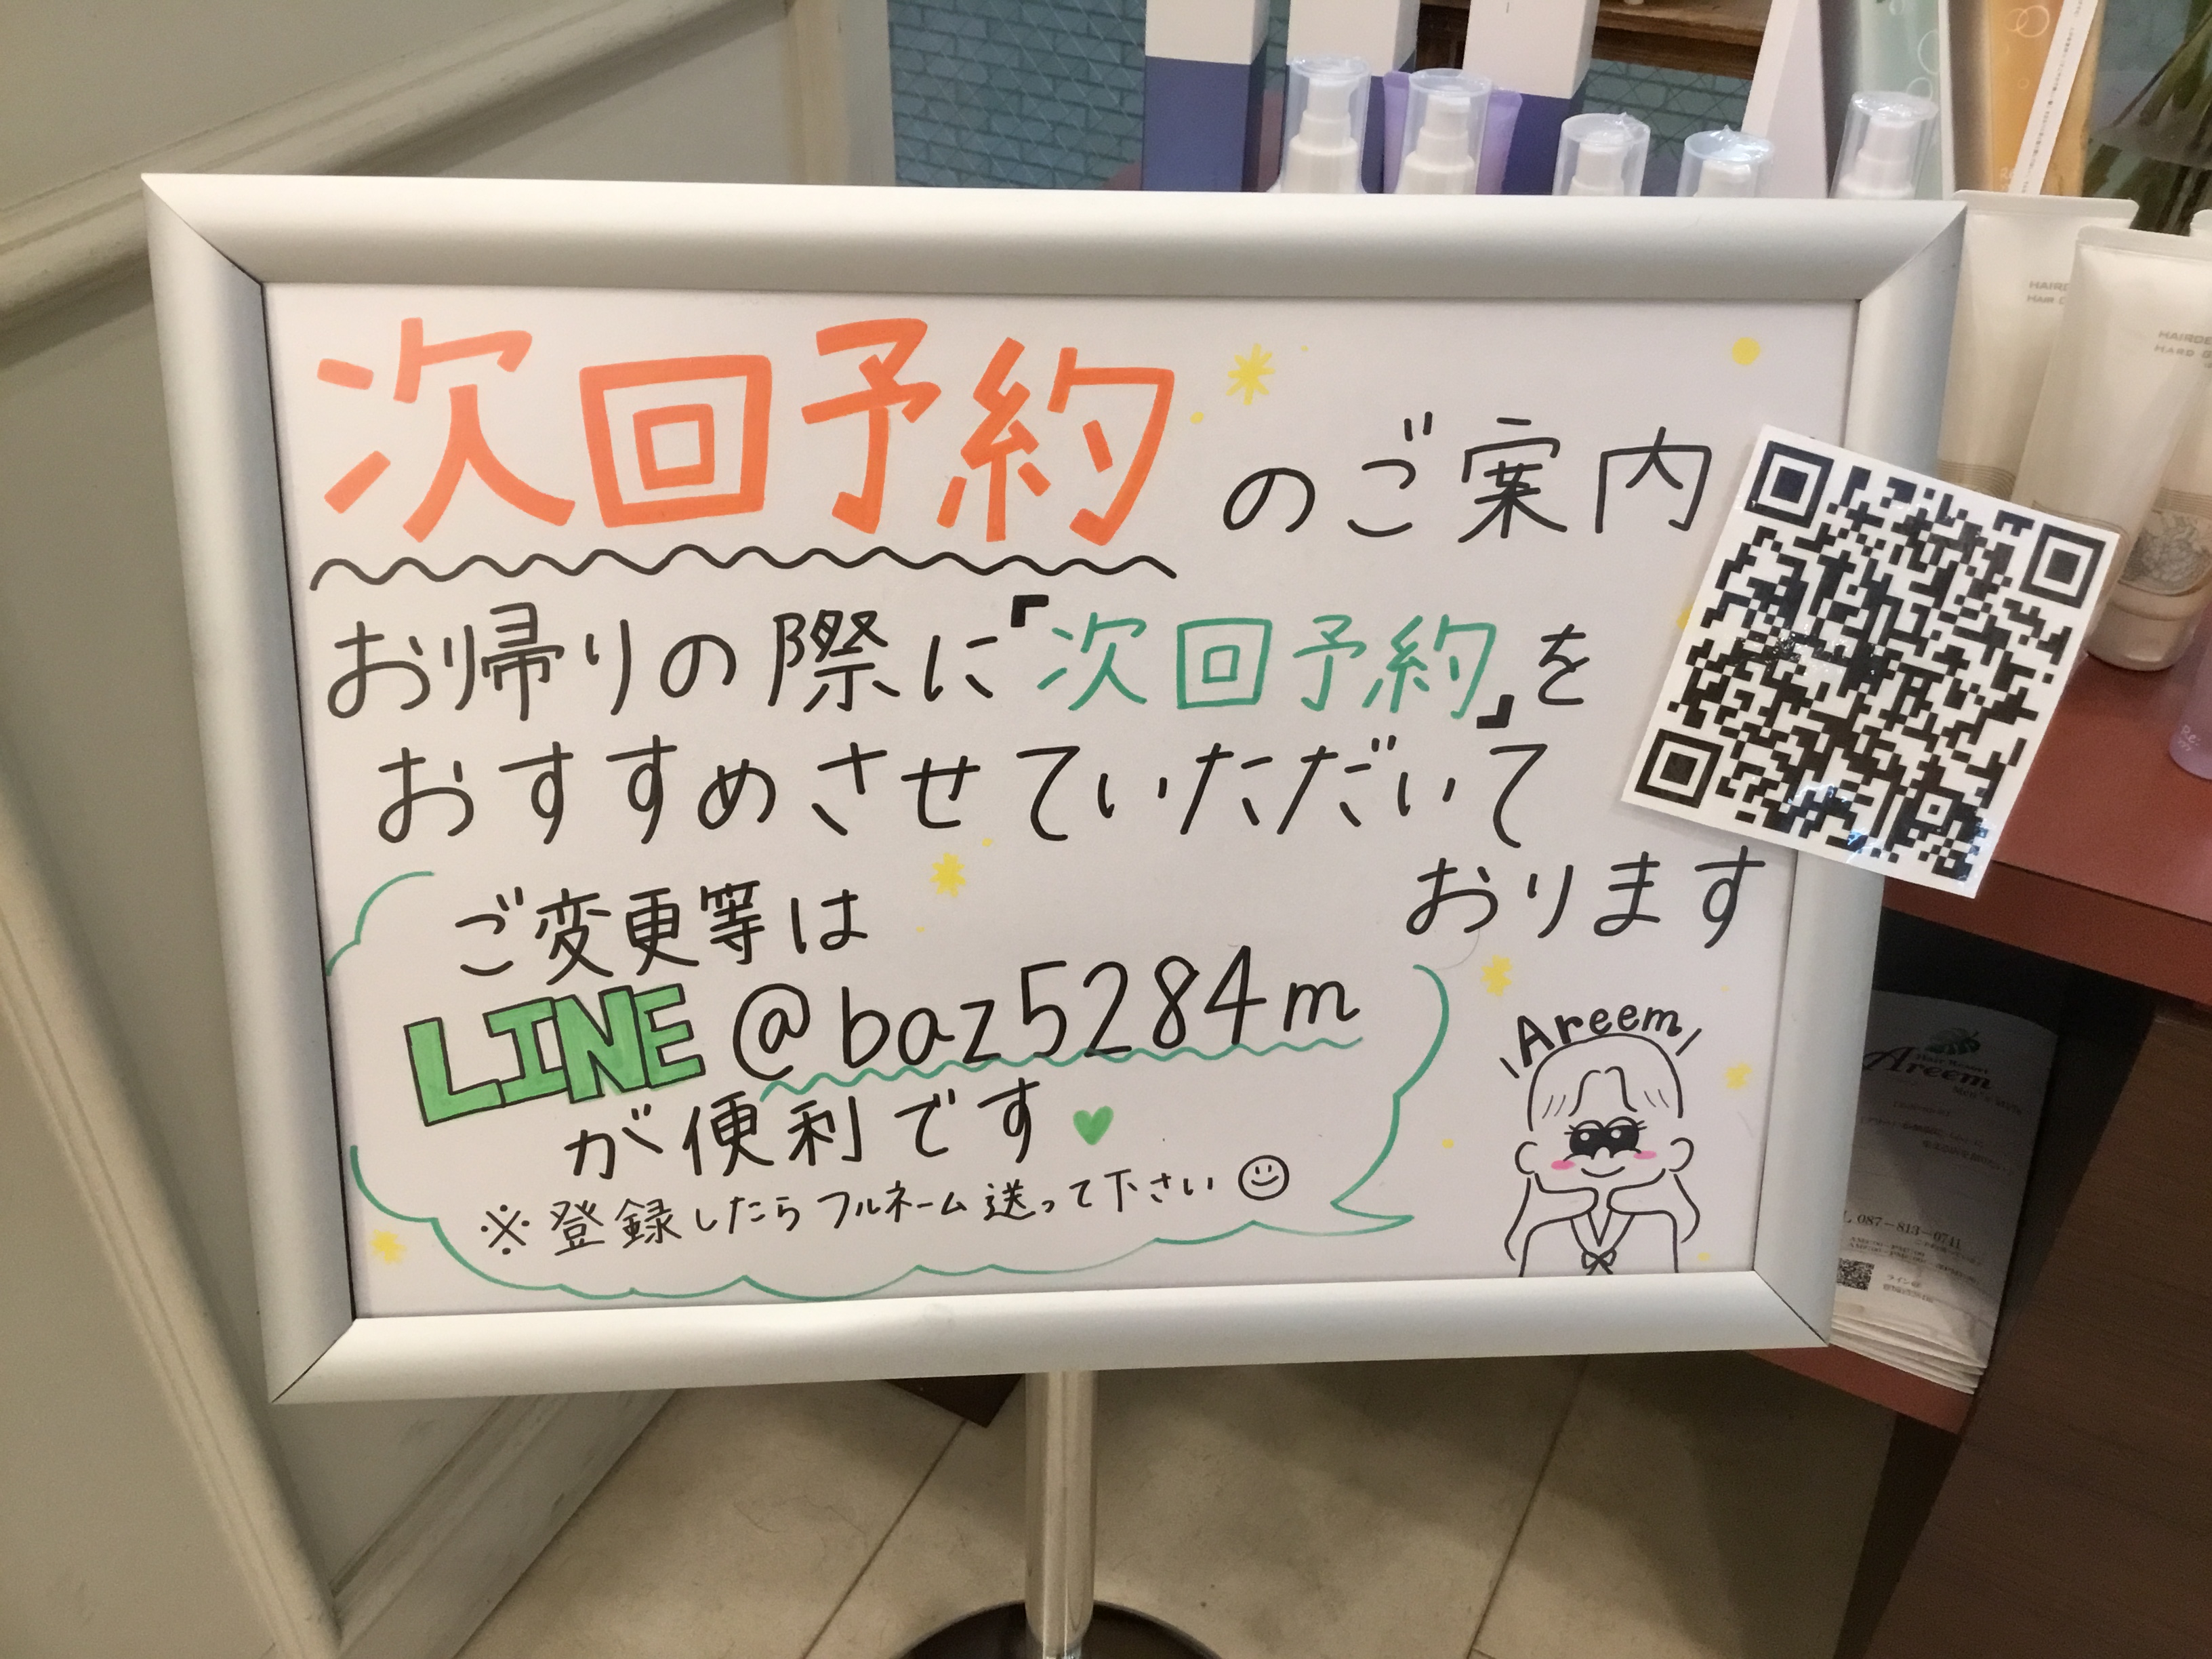 次回予約のご案内
お帰りの際に「次回予約」を
おすすめさせていただいて
おります
ご変更等は
LINE @baz5284m
が便利です
※登録したらフルネーム送って下さい
Areem
HAIRDE
HARD G
Hair Resort
Areem
087-813-0741